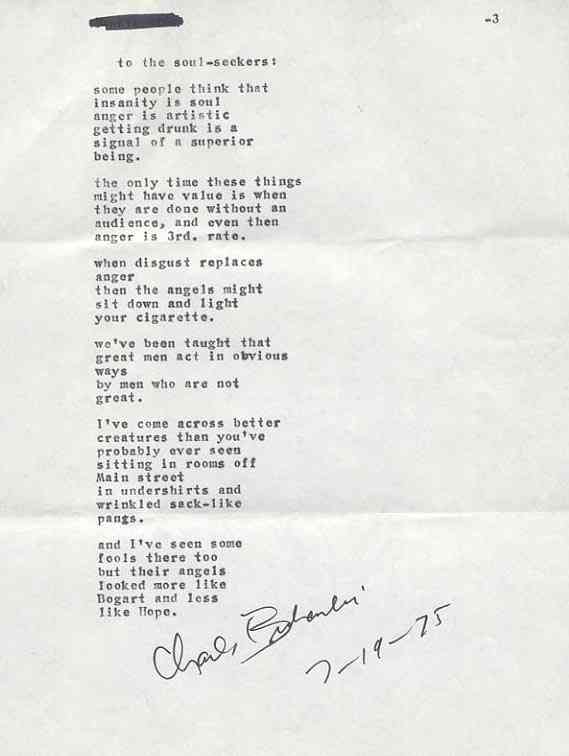 -3
to the soul-seekers:
some people think that
insanity is soul
anger is artistic
getting drunk is a
signal of a superior
being.
the only time these things
might have value is when
they are done without an
audience, and even then
anger is 3rd. rate.
when disgust replaces
anger
then the angels might
sit down and light
your cigarette.
we've been taught that
great men act in obvious
ways
by men who are not
great.
I've come across better
creatures than you've
probably ever seen
sitting in rooms off
Main street
in undershirts and
wrinkled sack-like
pangs.
and I've seen some
fools there too
but their angels
looked more like
Bogart and less
like Hope.
Charles Bukowski
7-19-75